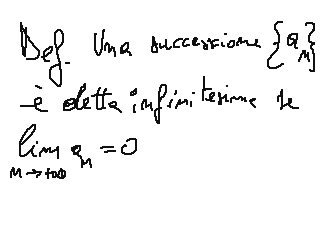 Def. Una successione {a_n}
è detta infinitesima se
lim a_n = 0
n→+∞